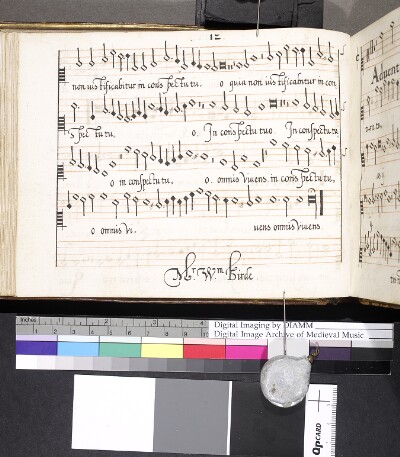 12
non iustificabitur in conspectu tu. o quia non iustificabitur in con
spectu tu. o. In conspectu tuo In conspectu tu
o in conspectu tu. o. omnis vivens. in conspectu tu,
o omnis vi. uens omnis vivens
Mr. Wm Birde
Aduent
Digital Imaging by DIAMM
Digital Image Archive of Medieval Music
QPCARD